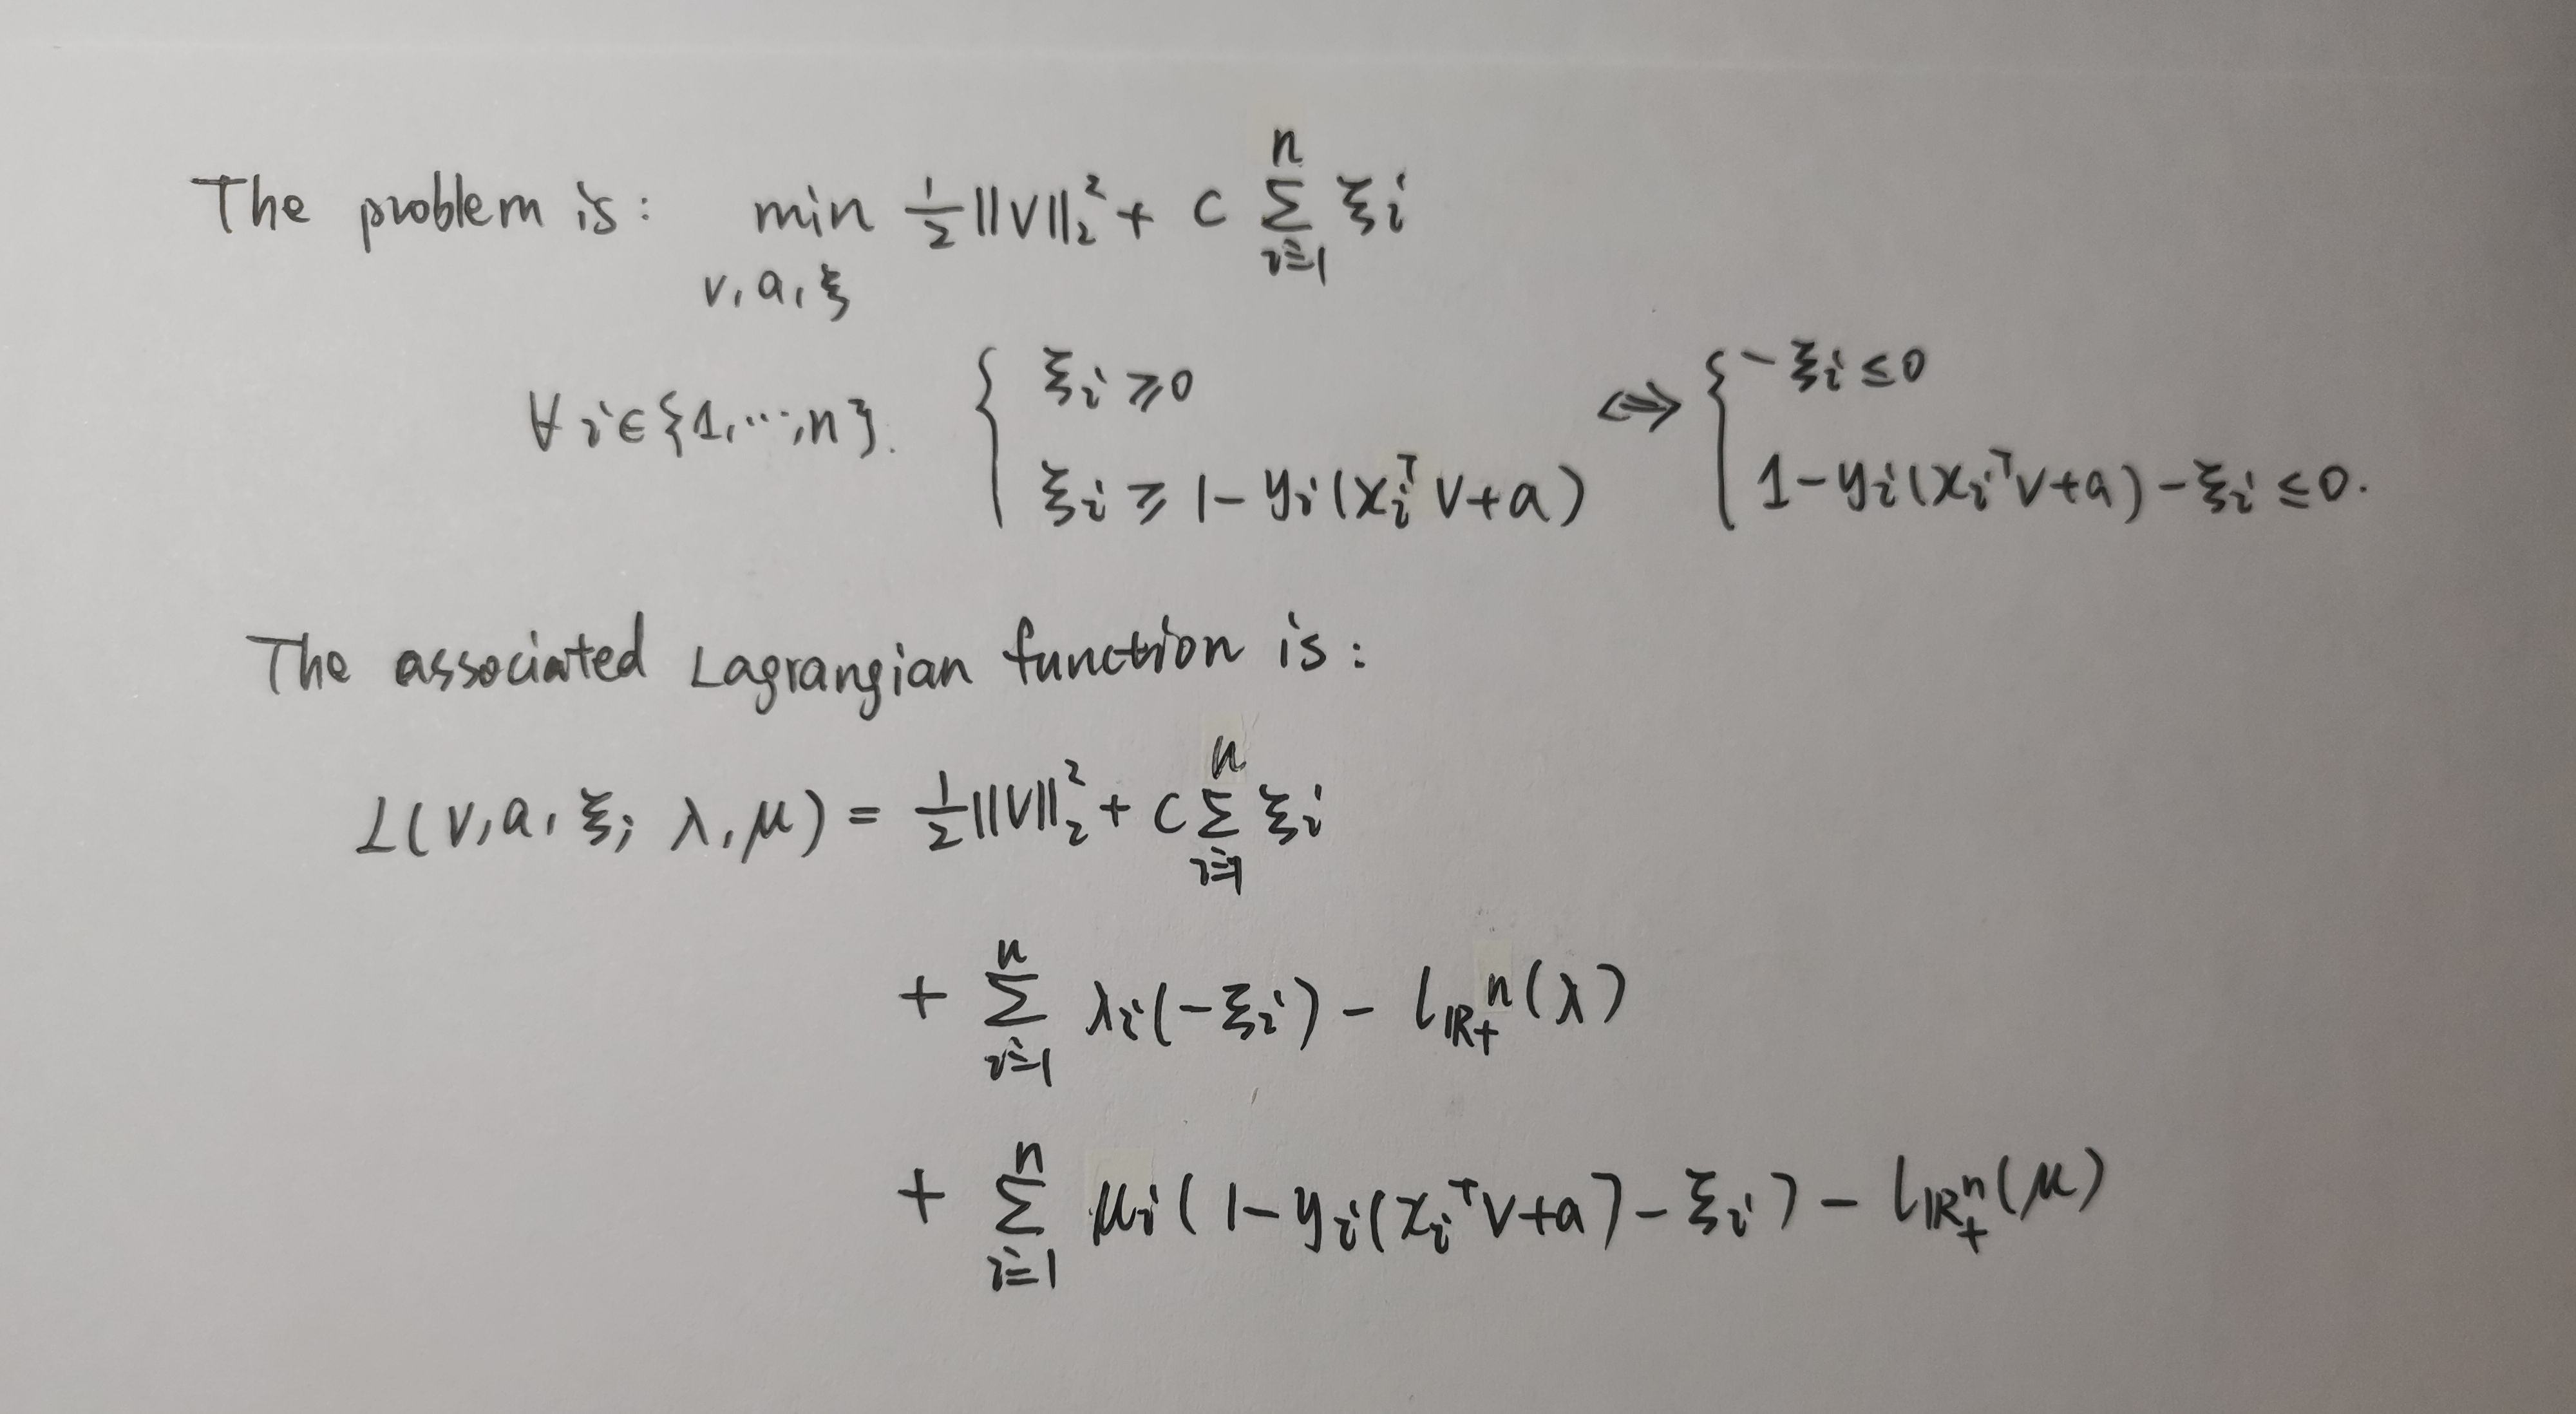 The problem is: min ½||v||₂² + c Σⁿᵢ₌₁ ξᵢ
v, a, ξ
∀ i∈{1,...,n}. { ξᵢ ≥ 0 ⇔ { -ξᵢ ≤ 0
ξᵢ ≥ 1-yᵢ(xᵢᵀv+a) 1-yᵢ(xᵢᵀv+a)-ξᵢ ≤ 0.
The associated Lagrangian function is:
L(v,a,ξ; λ,μ) = ½||v||₂² + c Σⁿᵢ₌₁ ξᵢ
+ Σⁿᵢ₌₁ λᵢ(-ξᵢ) - ι_ℝ₊ⁿ(λ)
+ Σⁿᵢ₌₁ μᵢ(1-yᵢ(xᵢᵀv+a)-ξᵢ) - ι_ℝ₊ⁿ(μ)